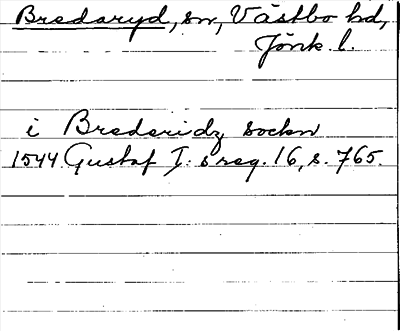 Bredaryd, sn, Västbo hd,
Jönk. l.
i Brederidz sockn
1544 Gustaf I:s reg. 16, s. 765.